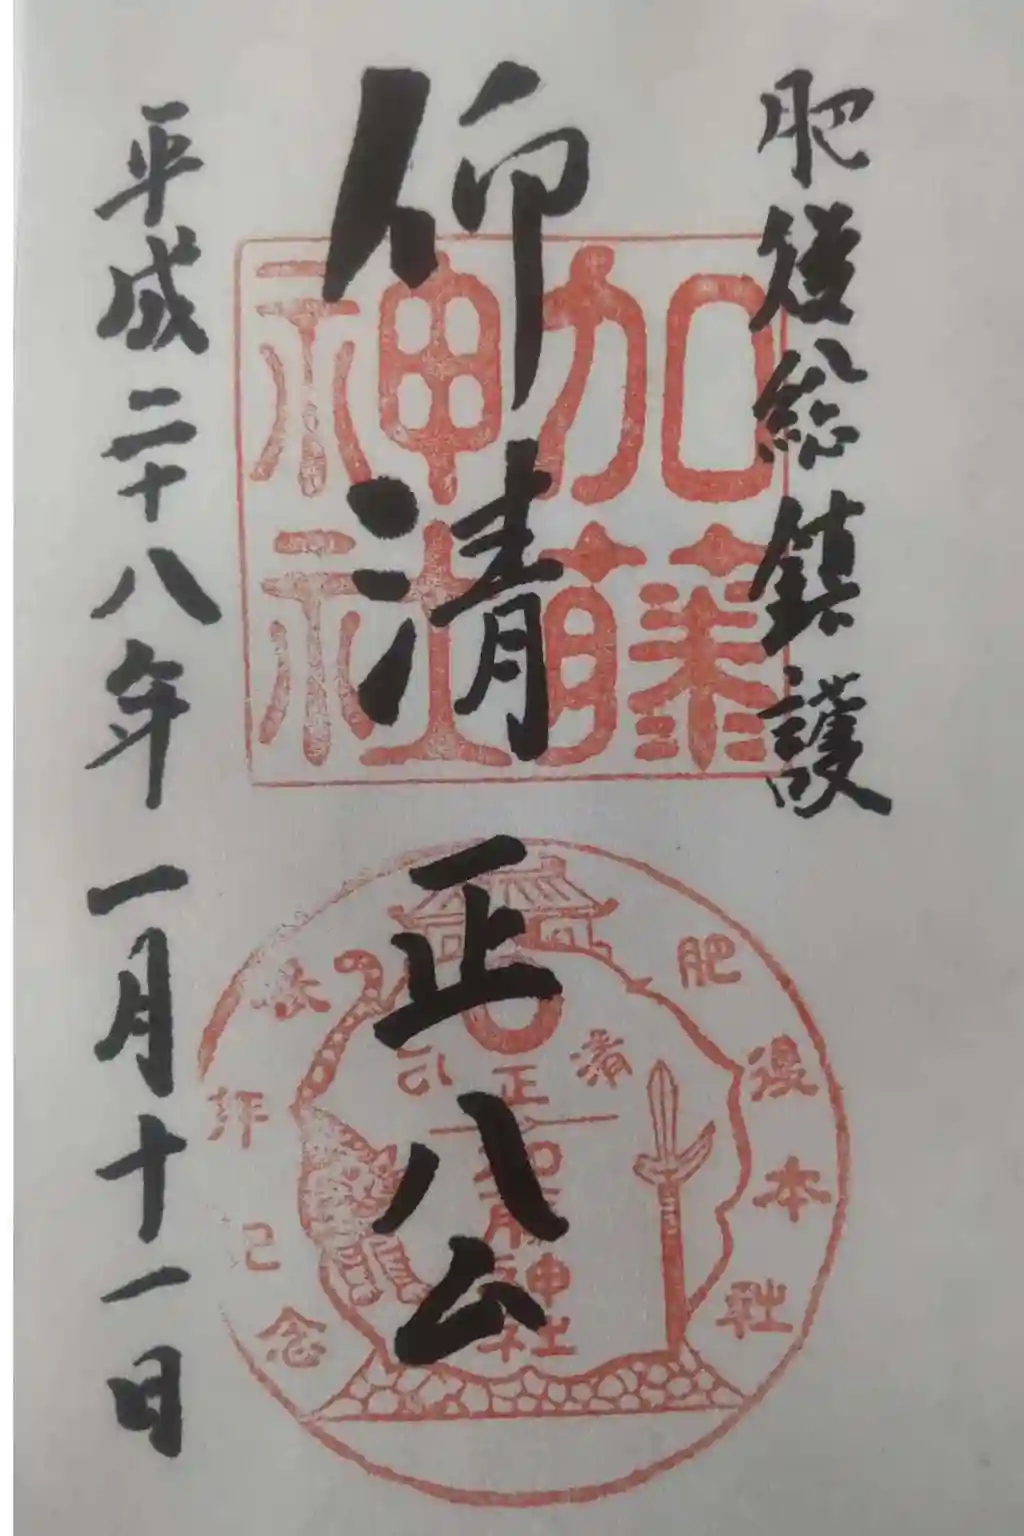 肥後総鎮護
仰清正公
平成二十八年一月十一日
加藤
神社
肥後本社
参拝記念
清正公
加藤神社